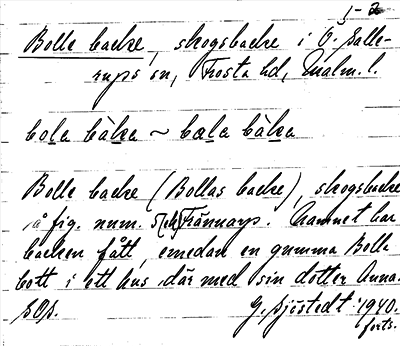 Bolle backe, skogsbacke i Ö. Salle-
rups sn, Frosta hd, Malm. l.
bola bàka ~ bæla bàka
Bolle backe (Bollas backe), skogsbacke
å fig. num. 5 Tränarp. Namnet har
backen fått, emedan en gumma Bolla
bott i ett hus där med sin dotter Anna.
SOS. G. Sjöstedt 1940.
forts.